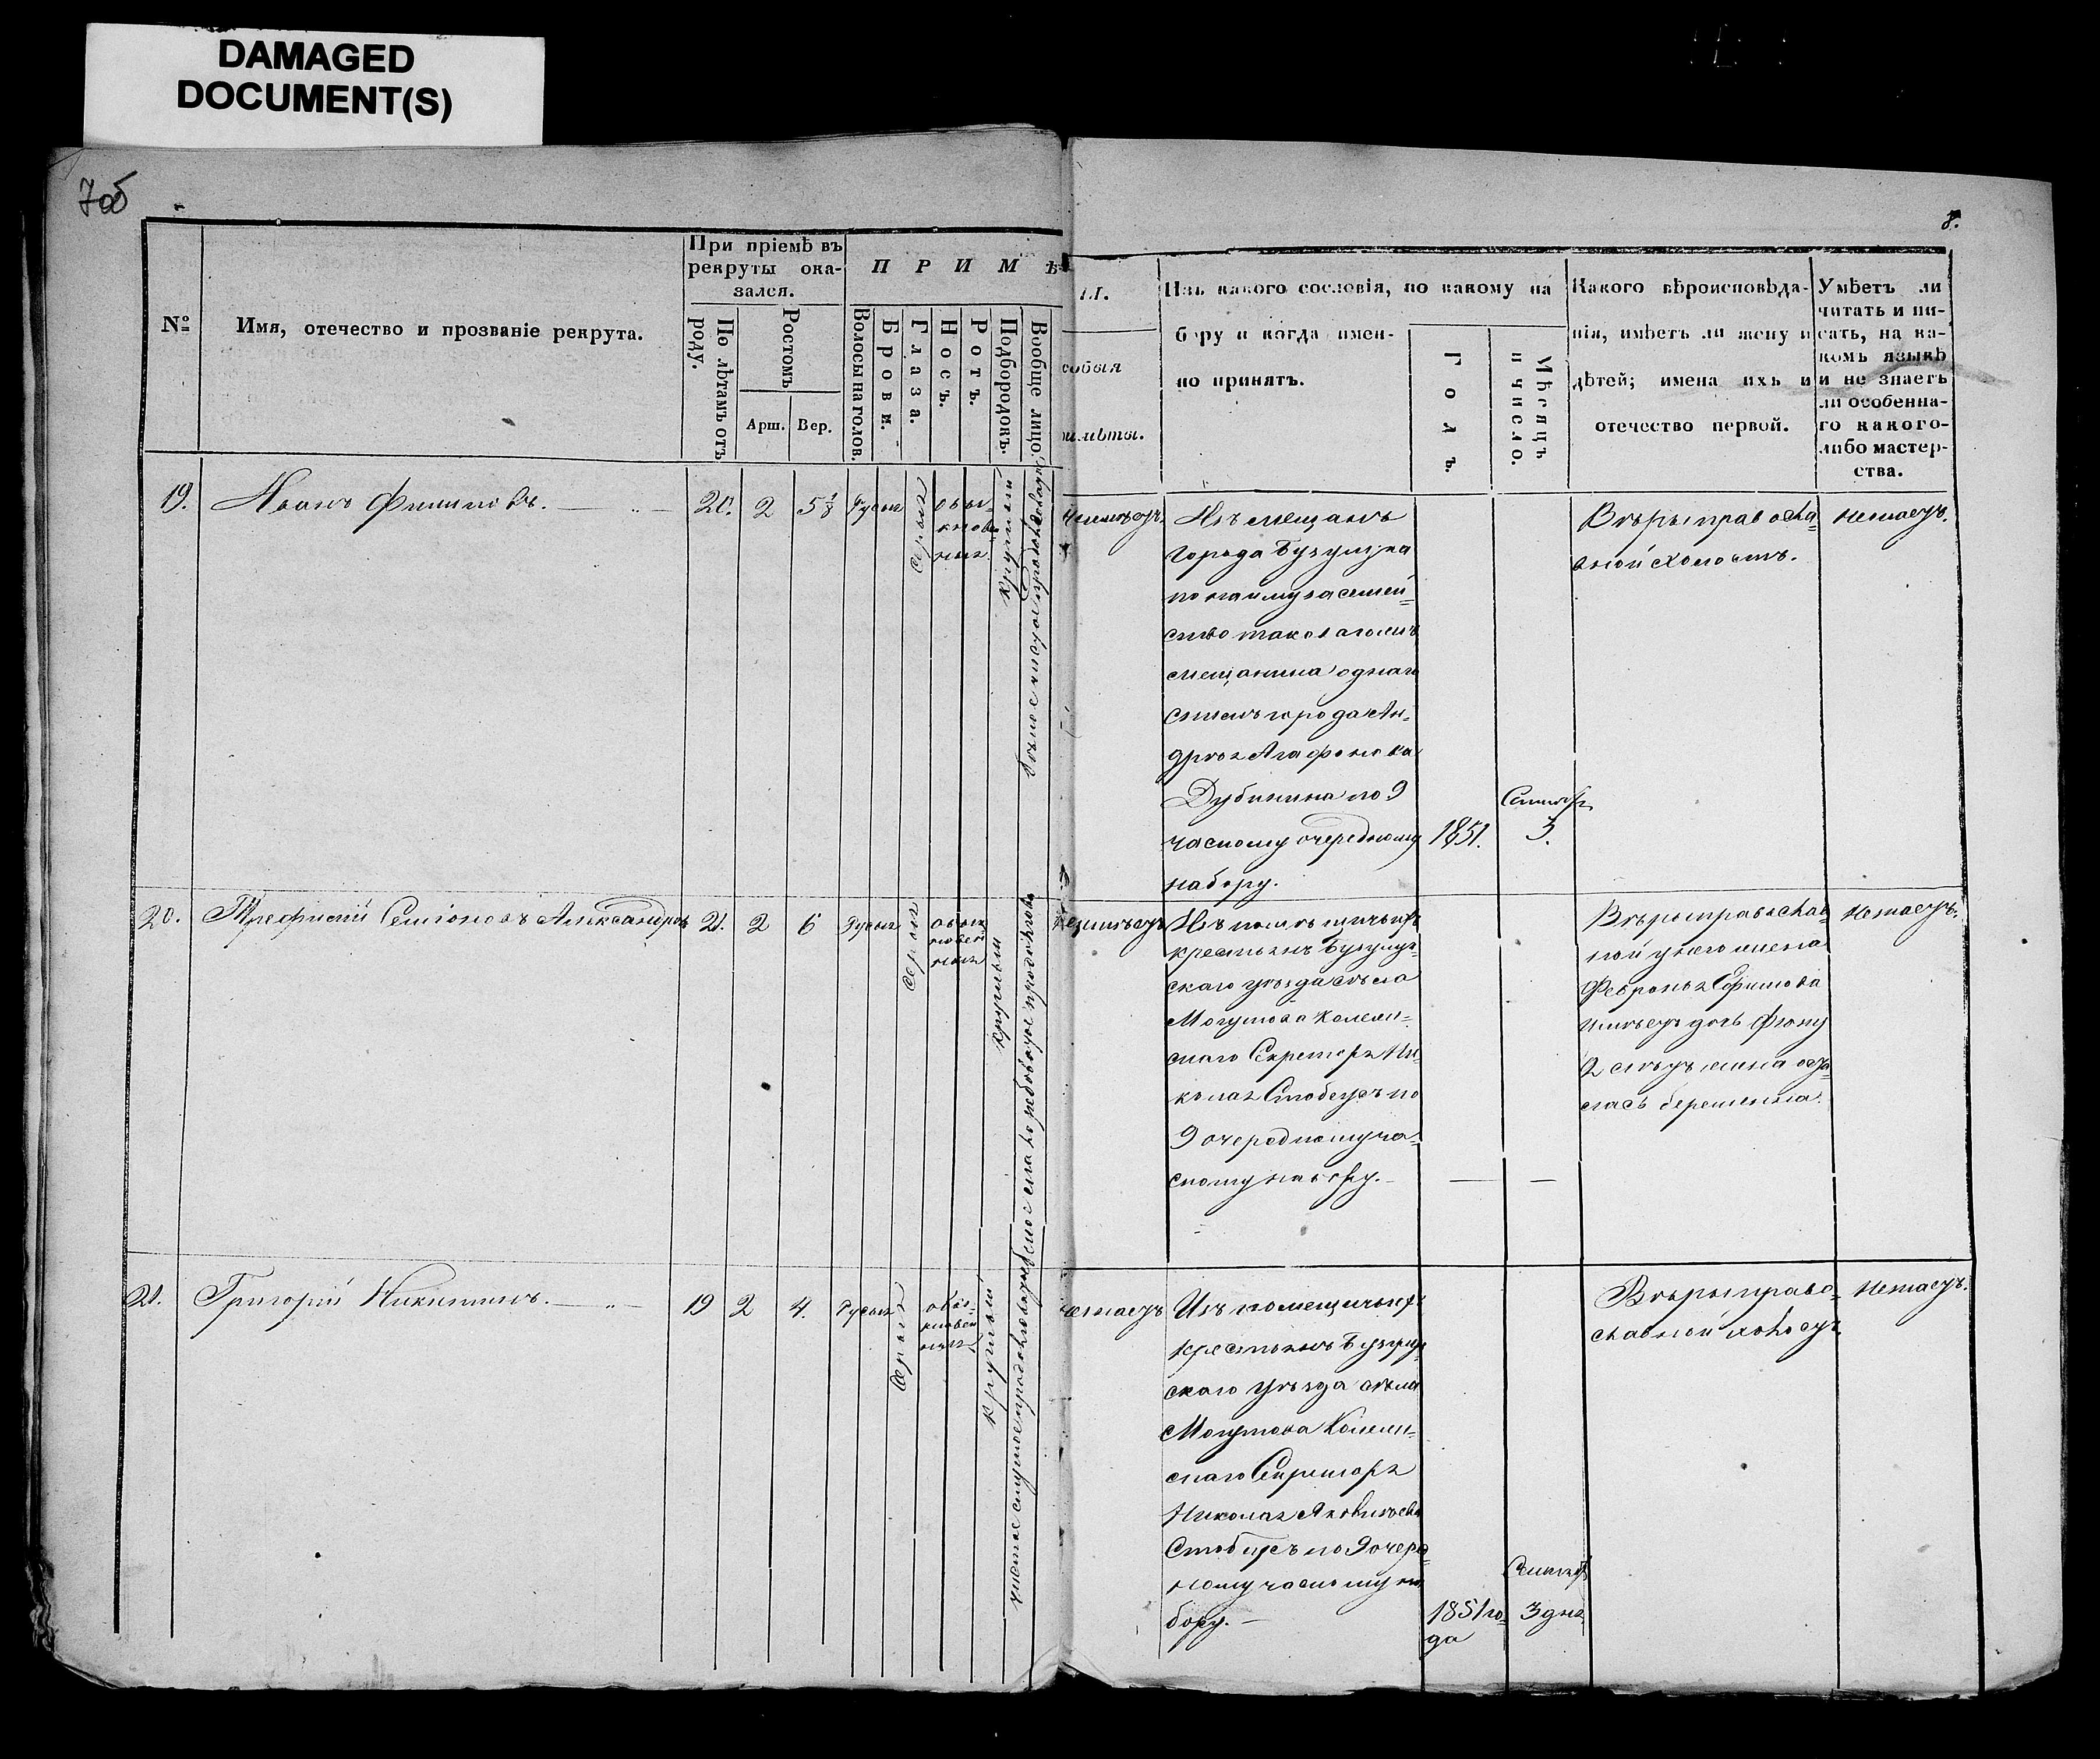 DAMAGED
DOCUMENT(S)
7об
8.
№
Имя, отечество и прозваніе рекрута.
При пріемѣ въ
рекруты ока-
зался.
По лѣтамъ отъ
роду.
Ростомъ
Арш.
Вер.
П Р И М Ѣ
Волосы на голов.
Брови.
Глаза.
Носъ.
Ротъ.
Подбородокъ.
Вообще лицо.
Ы.
собыя
имѣты.
Изъ какого сословія, по какому на
бору и когда имен-
но принятъ.
Годъ.
Мѣсяцъ
и число.
Какого вѣроисповѣда-
нія, имѣетъ ли жену и
дѣтей; имена ихъ и
отечество первой.
Умѣетъ ли
читать и пи-
сать, на ка-
комъ языкѣ
и не знаетъ
ли особенна-
го какого-
либо мастер-
ства.
19.
Иванъ Филиповъ.
20.
2
5 1/8
Русыя
Серыя
обы-
кнове
ныя
круглый
Неимѣетъ.
Изъ мещанъ
города Бузулука
по найму за семей-
ство
мещанина однаго
съ нимъ города Ан-
дрея Агафонова
Дубинина по 9
часному очередному
набору.
1851.
Сентябр
3.
Вѣры правосла-
вной холостъ.
Незнаетъ.
20.
Трефилий Семіоновъ Александровъ
21.
2
6
Русыя
Серыя
обык
новен
ныя
круглый
Неимѣетъ
Изъ помѣщичьихъ
крестьянъ Бузулук-
скаго уѣзда села
Могутова Колежи-
скаго Секретаря Ни-
колая Стобеусъ по
9 очередному ча-
сному набору.
Вѣры православ-
ной у него жена
Февронья Ефимова
имѣетъ дочь Феклу
2 лѣтъ жена оста-
лась беременна.
Незнаетъ.
21.
Григорій Никитинъ.
19
2
4.
Русыя
Серыя
обы-
кновен
ныя
круглый
Изъ помещичьихъ
крестьянъ Бузулук
скаго уѣзда села
Могутова Колежи-
скаго Секретаря
Николая Яковлева
Стобеусъ по 9 очеред-
ному часному на
бору.
1851 го-
да
Сентяб
3 дня
Вѣры право-
славной холостъ.
Незнаетъ.